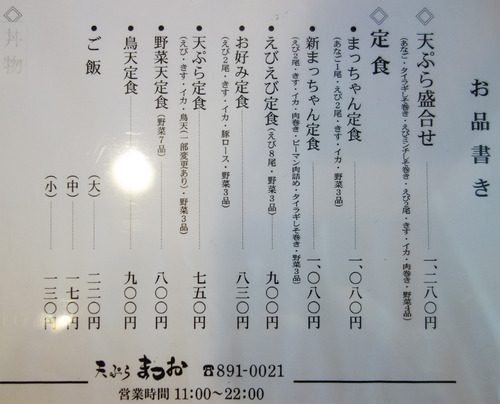 お品書き
◇天ぷら盛合せ 一、二八〇円
(あなご・タイラギしそ巻き・えびミンチしそ巻き・えび2尾・きす・イカ・肉巻き・野菜4品)
◇定食
●まっちゃん定食 一、〇八〇円
(あなご1尾・えび2尾・きす・イカ・野菜3品)
●新まっちゃん定食 一、〇八〇円
(えび2尾・きす・イカ・肉巻き・ピーマン肉詰め・タイラギしそ巻き・野菜3品)
●えびえび定食(えび8尾・野菜3品) 九〇〇円
●お好み定食 八三〇円
(えび2尾・きす・イカ・豚ロース・野菜3品)
●天ぷら定食 七五〇円
(えび・きす・イカ・鳥天(一部変更あり)・野菜3品)
●野菜天定食(野菜7品) 八〇〇円
●鳥天定食 九〇〇円
●ご飯 (大) 二二〇円
(中) 一七〇円
(小) 一三〇円
◇丼物
天ぷら まつお ☎891-0021
営業時間 11:00〜22:00